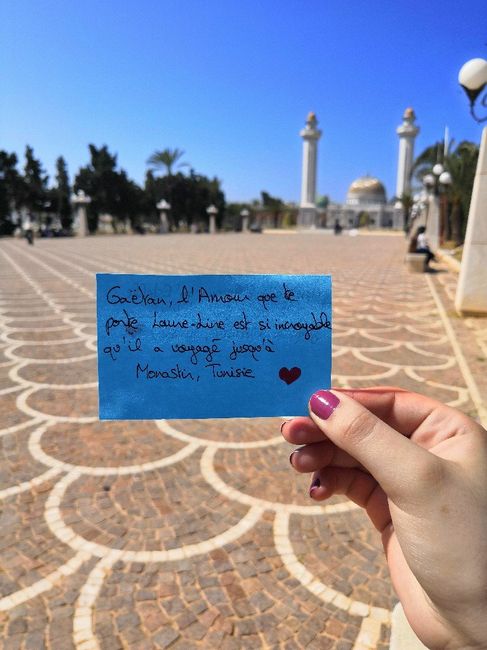 Gaëtan, l'Amour que te
porte Laure-Line est si incroyable
qu'il a voyagé jusqu'à
Monastir, Tunisie